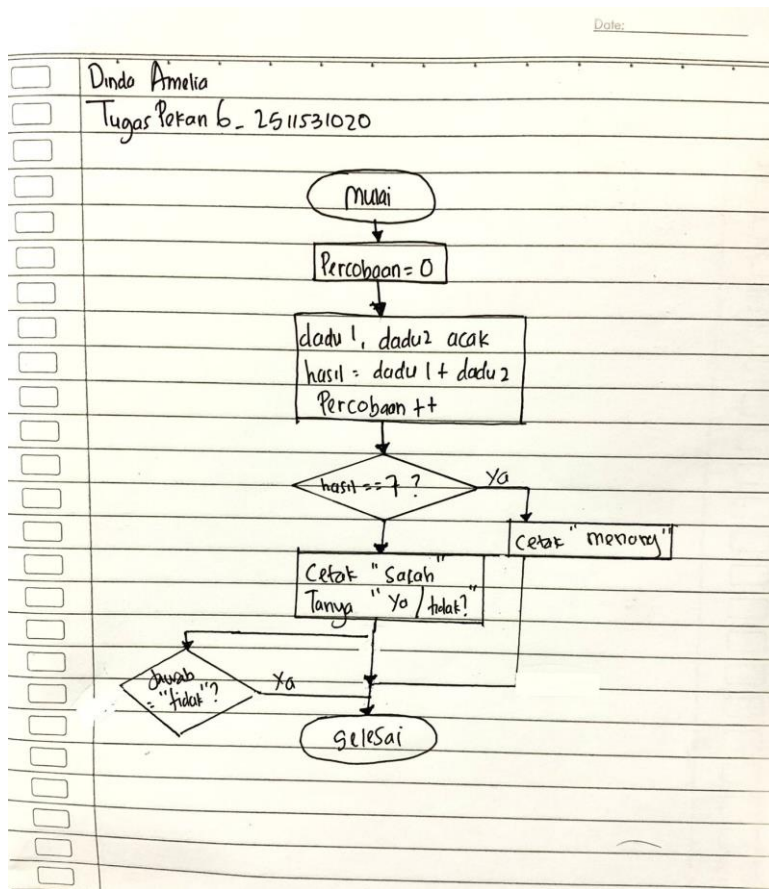 Date:
Dinda Amelia
Tugas Pekan 6_ 2511531020
mulai
Percobaan = 0
dadu 1, dadu2 acak
hasil = dadu 1 + dadu 2
Percobaan ++
hasil == 7 ?
Ya
Cetak "menang"
Cetak "Salah"
Tanya "Ya / tidak?"
Jawab
= "tidak"?
Ya
Selesai